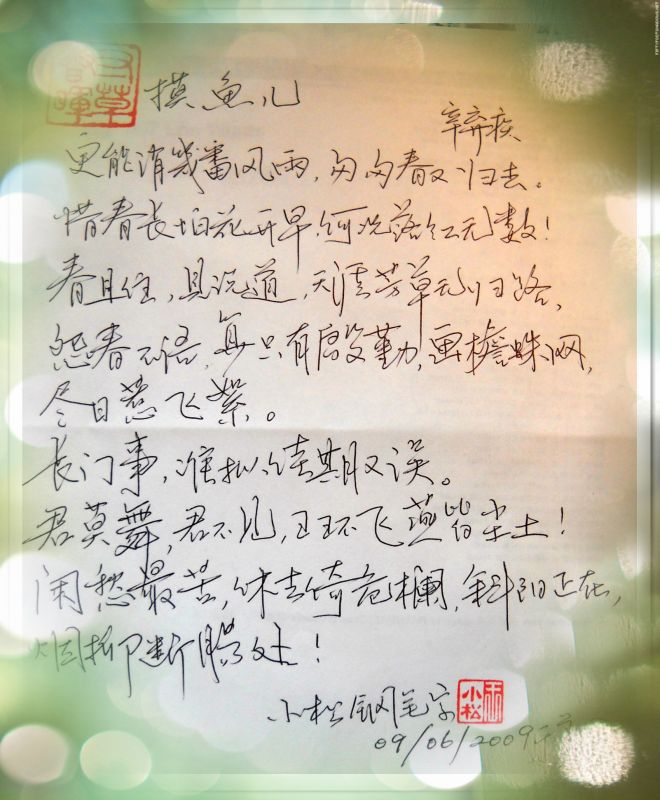 寸草春暉
摸鱼儿
辛弃疾
更能消幾番风雨,匆匆春又归去。
惜春长怕花开早,何况落红无数!
春且住,見说道,天涯芳草无归路,
怨春不语,算只有殷勤,画檐蛛网,
尽日惹飞絮。
长门事,准拟佳期又误。
君莫舞,君不见,玉环飞燕皆尘土!
闲愁最苦,休去倚危欄,斜阳正在,
烟柳断肠处!
小松钢笔字 小松
09/06/2009